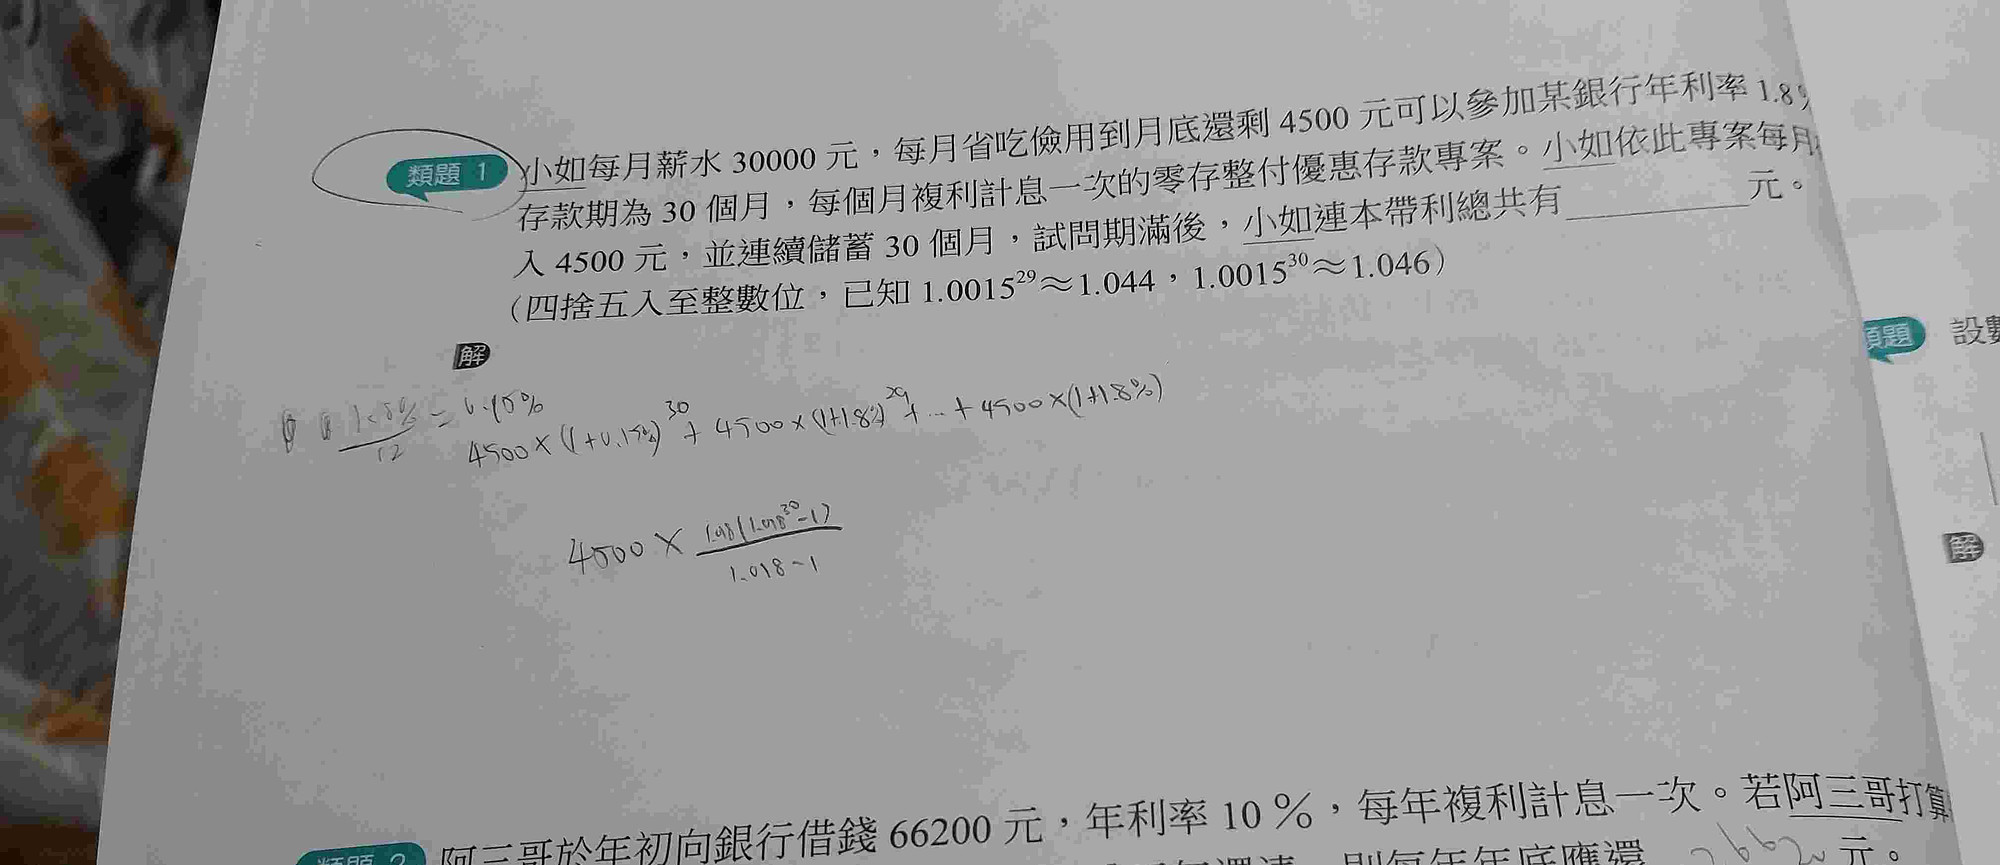 類題 1 小如每月薪水 30000 元，每月省吃儉用到月底還剩 4500 元可以參加某銀行年利率 1.8%
存款期為 30 個月，每個月複利計息一次的零存整付優惠存款專案。小如依此專案每月
入 4500 元，並連續儲蓄 30 個月，試問期滿後，小如連本帶利總共有________元。
（四捨五入至整數位，已知 1.0015²⁹≈1.044，1.0015³⁰≈1.046）
解
1.8%/12 = 0.15%
4500×(1+0.15%)³⁰ + 4500×(1+1.8%)²⁹ + … + 4500×(1+1.8%)
4500 × 1.018(1.018³⁰-1)/1.018-1
類題 2 阿三哥於年初向銀行借錢 66200 元，年利率 10％，每年複利計息一次。若阿三哥打算
則每年年底應還 元。
類題 設數
解